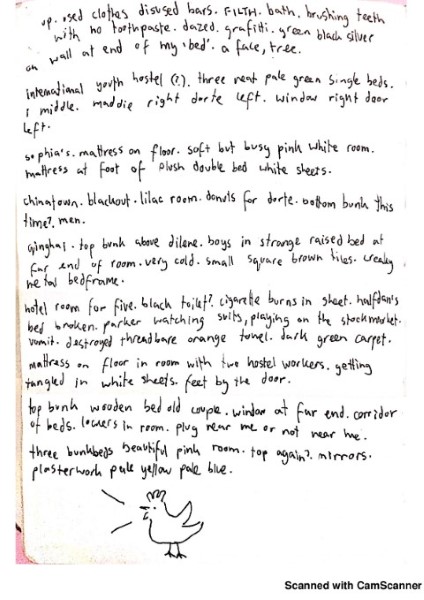 up. used clothes disused bars. FILTH. bath. brushing teeth
with no toothpaste. dazed. grafitti. green black silver
on wall at end of my 'bed'. a face, tree.
international youth hostel (?). three neat pale green single beds.
i middle. maddie right dorte left. window right door
left.
sophia's. mattress on floor. soft but busy pink white room.
mattress at foot of plush double bed white sheets.
chinatown. blackout. lilac room. donuts for dorte. bottom bunk this
time?. men.
qinghai. top bunk above dilene. boys in strange raised bed at
far end of room. very cold. small square brown tiles. creaky
metal bedframe.
hotel room for five. black toilet?. cigarette burns in sheet. halfdan's
bed broken. parker watching suits, playing on the stockmarket.
vomit. destroyed threadbare orange towel. dark green carpet.
mattress on floor in room with two hostel workers. getting
tangled in white sheets. feet by the door.
top bunk wooden bed old couple. window at far end. corridor
of beds. lockers in room. plug near me or not near me.
three bunkbeds beautiful pink room. top again?. mirrors.
plasterwork pale yellow pale blue.
Scanned with CamScanner